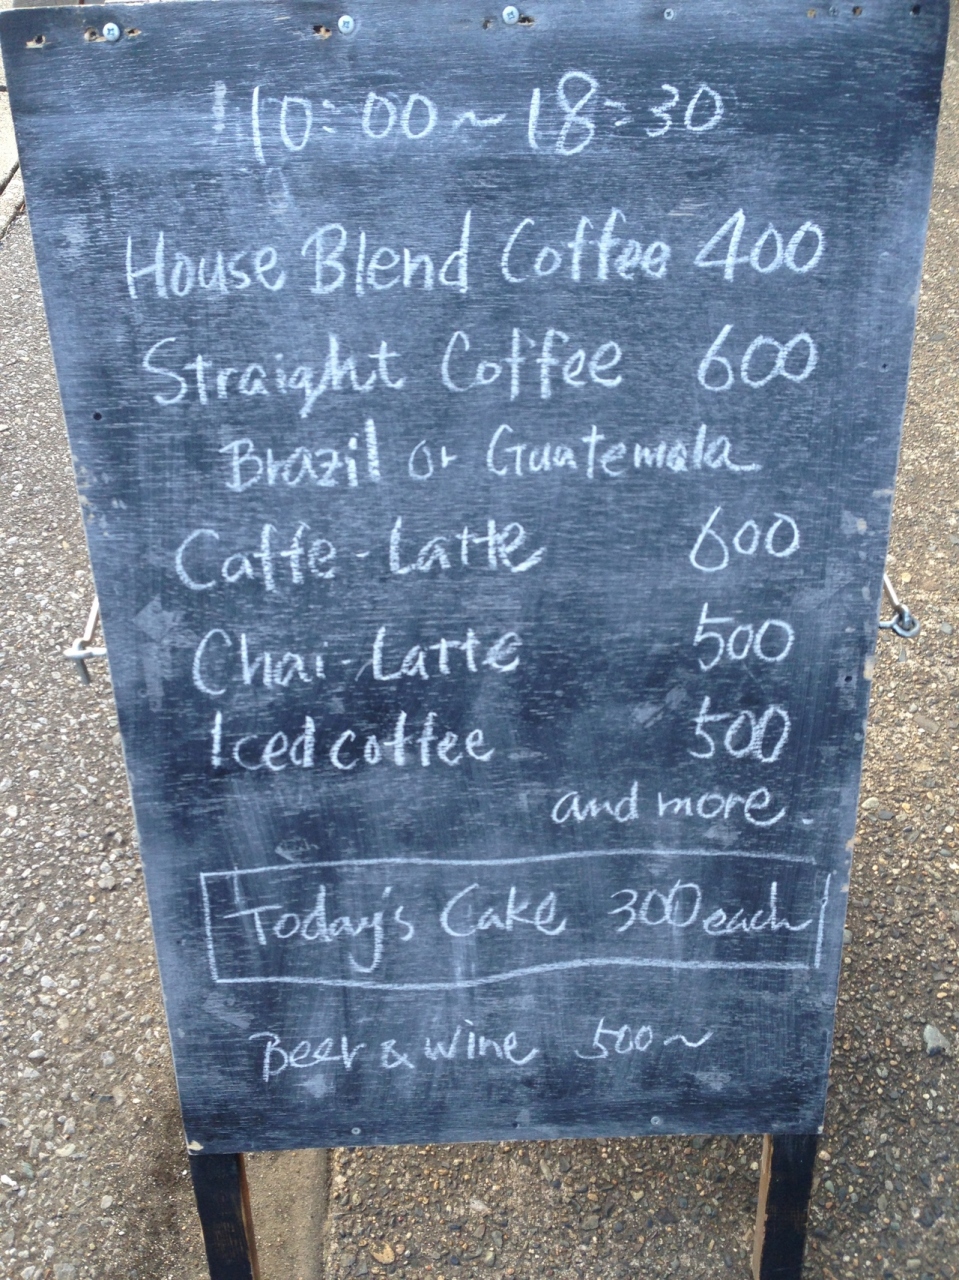 10:00~18:30
House Blend Coffee 400
Straight Coffee 600
Brazil or Guatemala
Caffe-Latte 600
Chai-Latte 500
Iced coffee 500
and more.
Today's Cake 300 each
Beer & Wine 500~